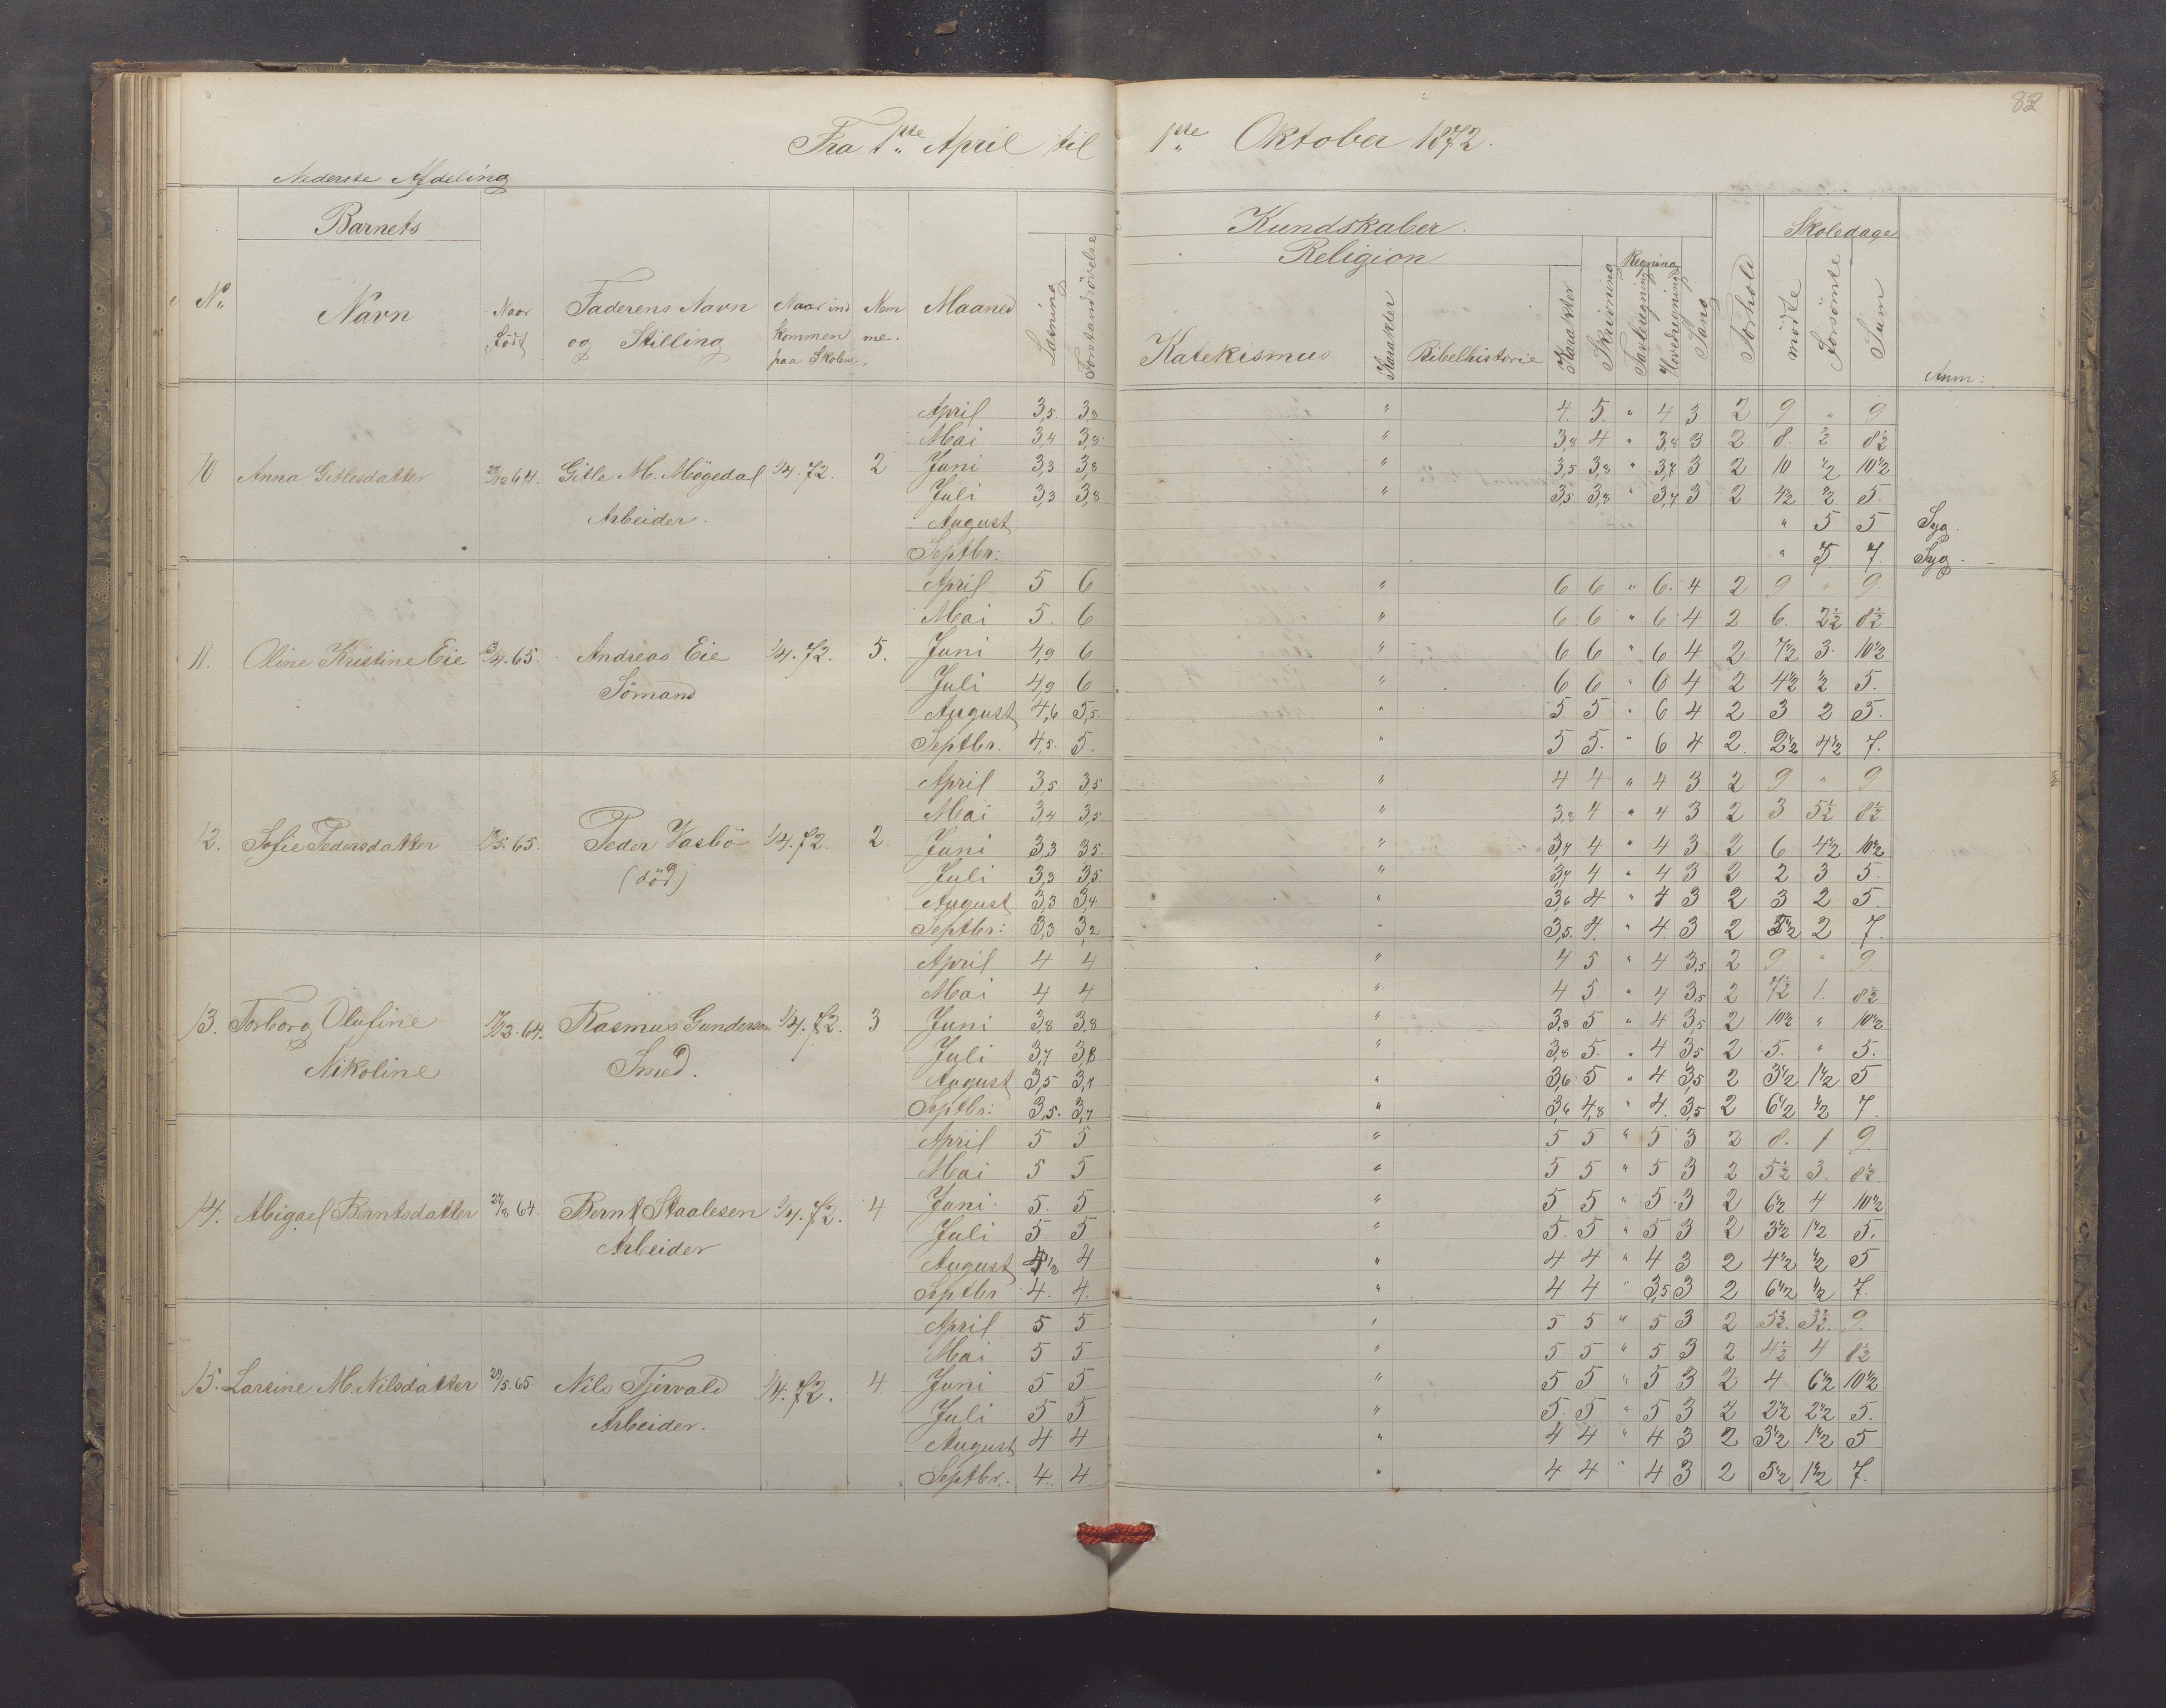 83
Fra 1ste April til 1ste Oktober 1872.
Nederste Afdeling
Barnets
Kundskaber.
Skoledage
Religion
Regning
No Navn Naar Født Faderens Navn og Stilling Naar ind kommen paa Skolen Nem me. Maaned Læsning Forstandsövelse Katekismus Karakter Bibelhistorie Karakter Skrivning Tavleregning Hovedregning Sang Forhold mödte Forsömte Sum Anm:
April 3,5. 3,8 " 4. 5. " 4 3 2 9 " 9
Mai 3,4 3,8 " 3,8 4 " 3,8 3 2 8. ½ 8½
10 Anna Gitlesdatter 64. Gitle M. Mögedal 1/4.72. 2 Juni 3,3 3,8 " 3,5 3,8 " 3,7 3 2 10 ½ 10½
Juli 3,3 3,8 " 3,5 3,8 " 3,7 3 2 4½ ½ 5.
Arbeider. August " 5 5 Syg.
Septbr: " 7 7. Syg.
April 5 6 " 6 6 " 6. 4 2 9 " 9.
Mai 5. 6 " 6 6 " 6 4 2 6. 2½ 8½
11. Oline Kristine Eie 3/4.65. Andreas Eie 1/4.72. 5. Juni 4,9 6 " 6 6 " 6 4 2 7½ 3. 10½
Sömand Juli 4,9 6 " 6 6 " 6 4 2 4½ ½ 5.
August 4,6 5,5. " 5 5 " 6 4 2 3 2 5.
Septbr. 4,5. 5. " 5 5. " 6 4 2. 2½ 4½ 7.
April 3,5 3,5 " 4 4 " 4 3 2 9 " 9
Mai 3,4 3,5 " 3,8 4 " 4 3 2 3 5½ 8½
12. Sofie Pedersdatter 65. Peder Vasbö 1/4.72. 2. Juni 3,3 3,5. " 3,7 4 " 4 3 2 6 4½ 10½
(död) Juli 3,3 3,5. " 3,7 4 " 4 3 2 2 3 5.
August 3,3 3,4 " 3,6 4 " 4 3 2 3 2 5.
Septbr: 3,3 3,2 " 3,5. 4. " 4. 3 2 2 7.
April 4 4 " 4 5 " 4 3,5 2 9 " 9.
Mai 4 4 " 4 5. " 4 3,5 2 7½ 1. 8½
13. Torborg Olufine 64. Rasmus Gundersen 1/4.72. 3 Juni 3,8 3,8 " 3,8 5 " 4 3,5 2 10½ " 10½
Nikoline Smed. Juli 3,7 3,8 " 3,8 5. " 4 3,5 2 5. " 5.
August 3,5 3,7 " 3,6 5 " 4 3,5 2 3½ 1½ 5
Septbr: 3,5. 3,7 " 3,6 4,8 " 4. 3,5 2 6½ ½ 7.
April 5 5 " 5 5 " 5 3 2 8. 1 9.
Mai 5 5 " 5 5 " 5 3 2 5½ 3. 8½
14. Abigael Berntsdatter 27/8 64. Bernt Staalesen 1/4.72. 4 Juni. 5. 5 " 5 5 " 5. 3 2 6½ 4 10½
Arbeider Juli 5. 5 " 5. 5 " 5 3 2 3½ 1½ 5.
August 4½ 4 " 4 4 " 4 3 2 4½ ½ 5
Septbr 4. 4. " 4 4 " 3,5 3 2 6½ ½ 7.
April 5 5 " 5 5 " 5 3 2 5½. 3½. 9.
Mai 5 5 " 5 5 " 5 3 2 4½ 4 8½
15. Larsine M. Nilsdatter 29/5.65. Nils Tjervald 1/4.72. 4. Juni 5 5 " 5 5 " 5 3 2 4 6½ 10½
Arbeider. Juli 5 5 " 5. 5 " 5 3 2 2½ 2½ 5.
August 4 4 " 4 4 " 4 3 2 3½ 1½ 5
Septbr. 4. 4. " 4 4 " 4 3 2 5½ 1½ 7.